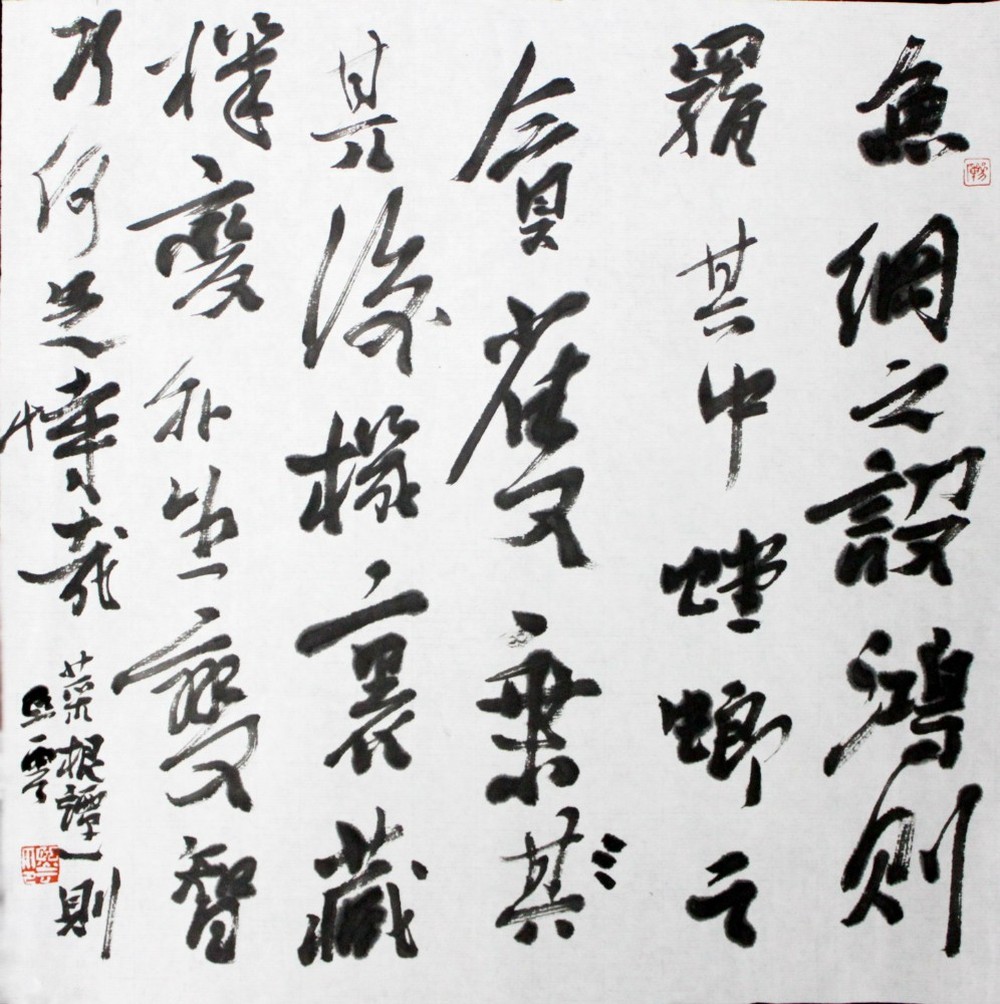 魚網之設鴻則
罹其中螳螂之
貪雀又乘其
其後機裏藏
機變外生變智
巧何足恃哉
菜根譚一則
雲